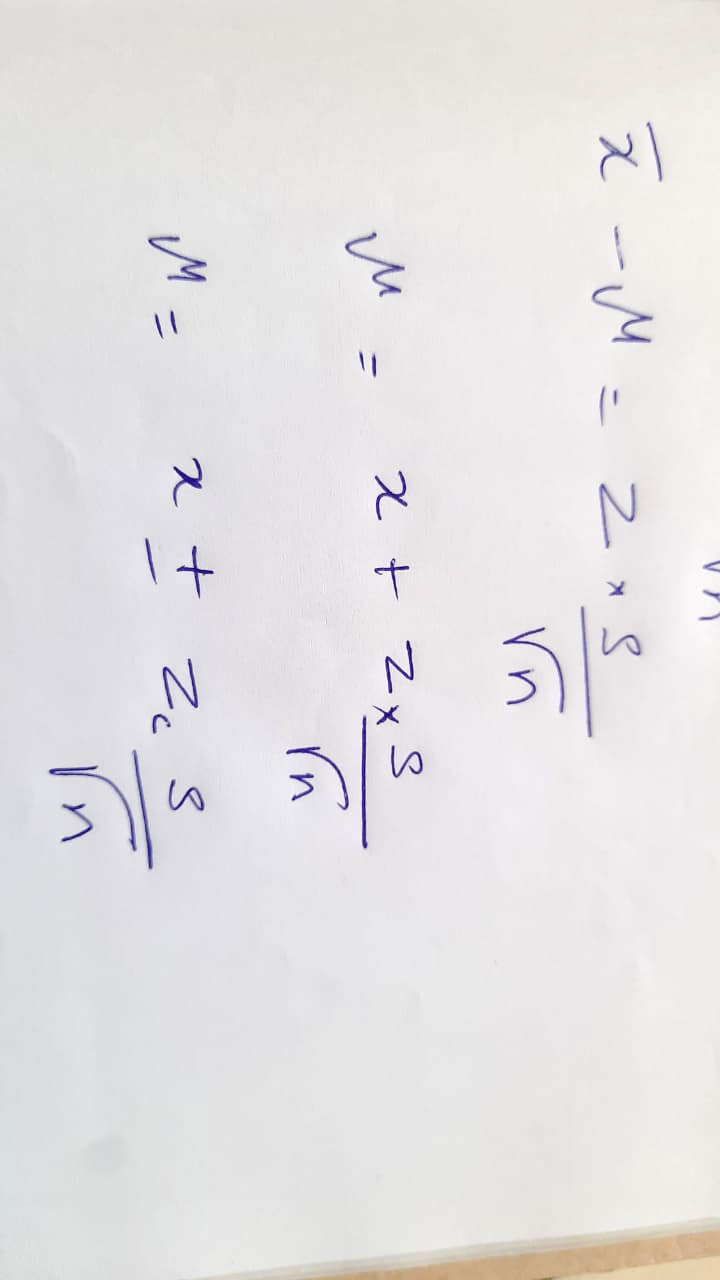 √n
x̄ - μ = Z × S/√n
μ = x + Z × S/√n
μ = x ± Zc S/√n